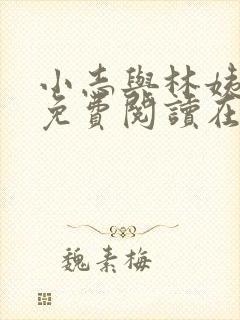 小志與林姨
免費閱讀在
魏素梅